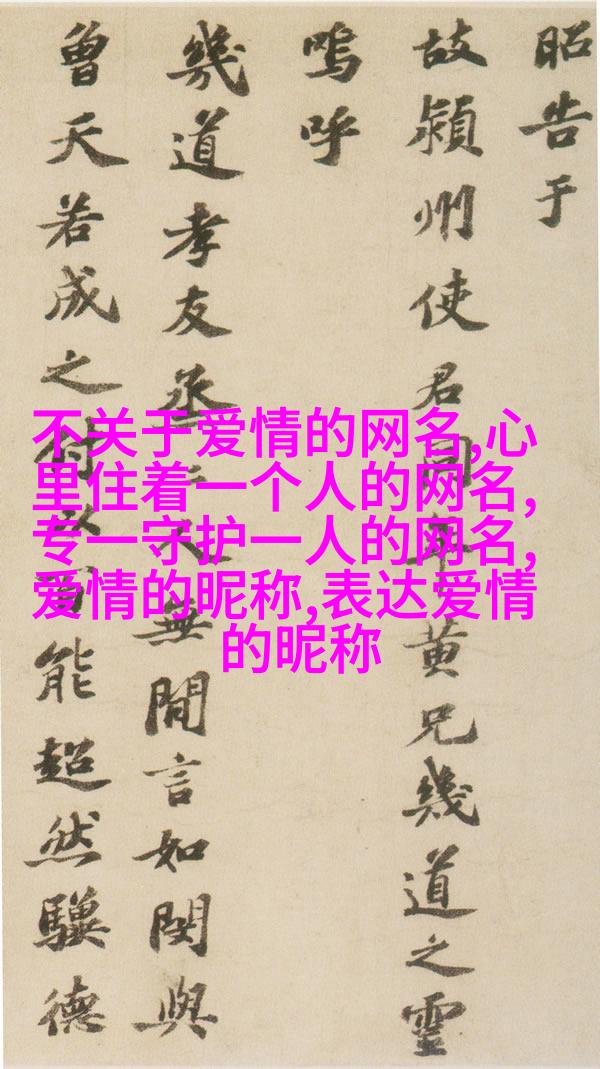 昭告于
故潁州使君同年黄兄幾道之靈
嗚呼
幾道孝友烝無閒言如閔與
曾天若成之付能超然驥德
不关于爱情的网名,心
里住着一个人的网名,
专一守护一人的网名,
爱情的昵称,表达爱情
的昵称